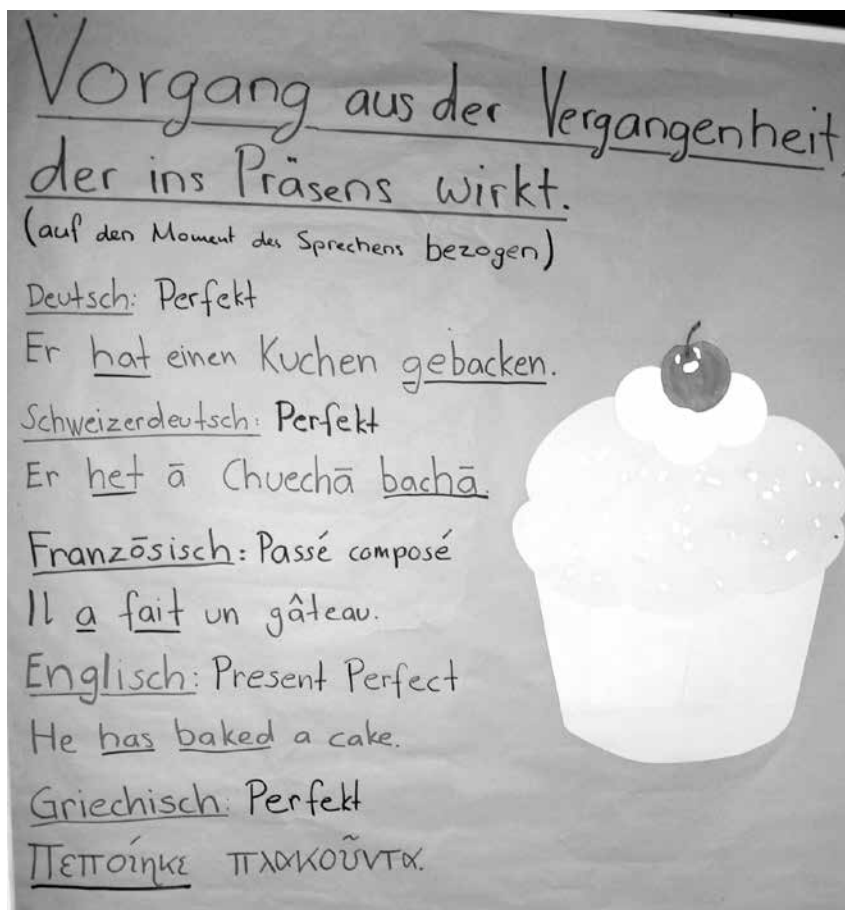 Vorgang aus der Vergangenheit,
der ins Präsens wirkt.
(auf den Moment des Sprechens bezogen)
Deutsch: Perfekt
Er hat einen Kuchen gebacken.
Schweizerdeutsch: Perfekt
Er het ā Chuechā bachā.
Französisch: Passé composé
Il a fait un gâteau.
Englisch: Present Perfect
He has baked a cake.
Griechisch: Perfekt
Πεποίηκε πλακοῦντα.